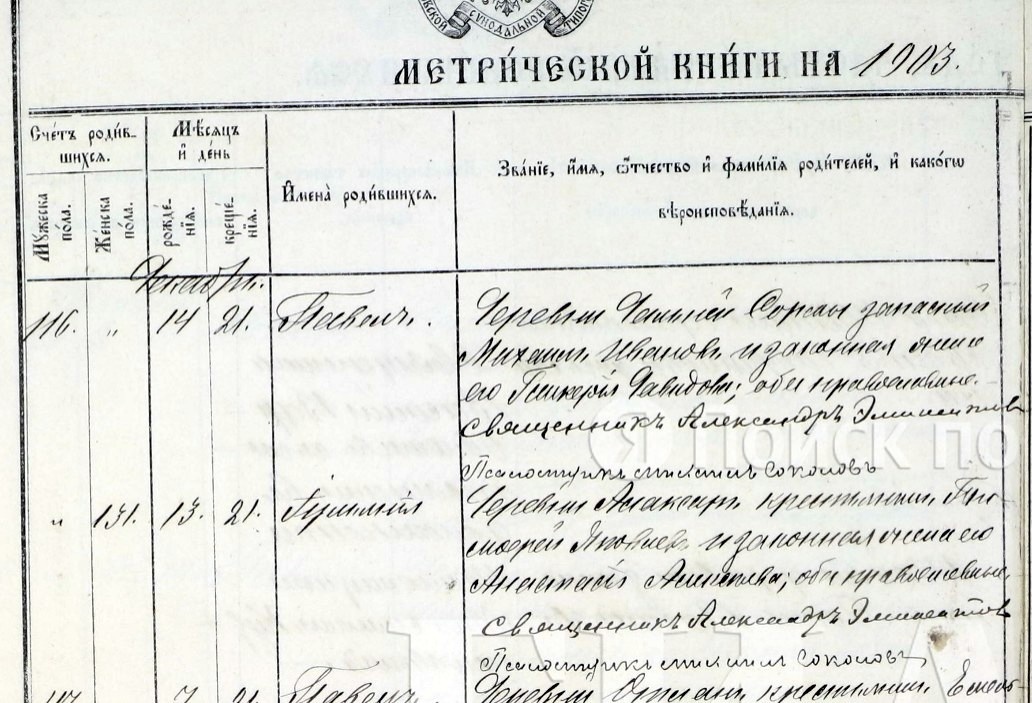 СѴНОДАЛЬНОЙ
МЕТРИ́ЧЕСКОЙ КНИ́ГИ НА 1903.
Сче́тъ роди́в-
шихся.
Мѣ́сяцъ
и҆ де́нь
И҆мена̀ роди́вшихся.
Зва́нїе, и҆́мя, ѻ҆́тчество и҆ фами́лїя роди́телей, и҆ како́гѡ
вѣроисповѣ́данїя.
Мꙋ́жеска
по́ла.
Же́нска
по́ла.
рожде́-
нїя.
креще́-
нїя.
Декабрь.
116. „ 14 21. Павелъ. Деревни Сорсы запасный
Михаилъ Ивановъ и законная жена
его Гликерія Давидова; оба православные.
Священникъ Александръ
Псаломщикъ Соколовъ
„ 131. 13. 21. Деревни крестьянинъ
Яковлевъ и законная жена его
Анастасія оба православные,
Священникъ Александръ
Псаломщикъ Соколовъ
7 21 Павелъ Деревни крестьянинъ
Я Поиск по